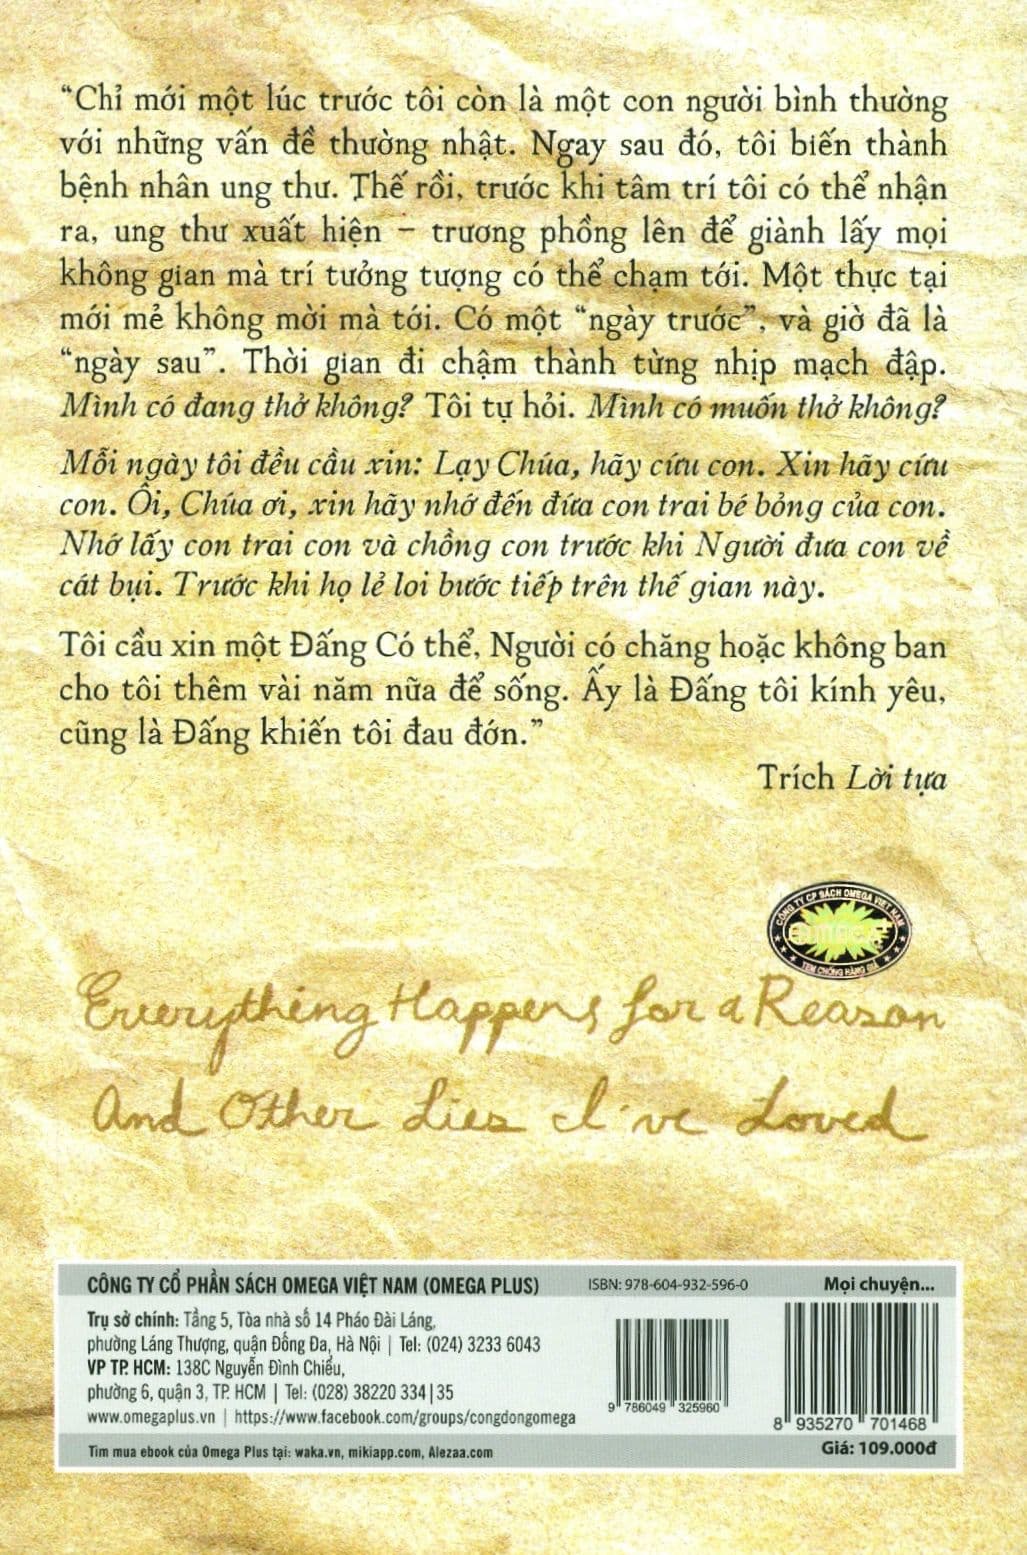 “Chỉ mới một lúc trước tôi còn là một con người bình thường
với những vấn đề thường nhật. Ngay sau đó, tôi biến thành
bệnh nhân ung thư. Thế rồi, trước khi tâm trí tôi có thể nhận
ra, ung thư xuất hiện – trương phồng lên để giành lấy mọi
không gian mà trí tưởng tượng có thể chạm tới. Một thực tại
mới mẻ không mời mà tới. Có một “ngày trước”, và giờ đã là
“ngày sau”. Thời gian đi chậm thành từng nhịp mạch đập.
Mình có đang thở không? Tôi tự hỏi. Mình có muốn thở không?
Mỗi ngày tôi đều cầu xin: Lạy Chúa, hãy cứu con. Xin hãy cứu
con. Ôi, Chúa ơi, xin hãy nhớ đến đứa con trai bé bỏng của con.
Nhớ lấy con trai con và chồng con trước khi Người đưa con về
cát bụi. Trước khi họ lẻ loi bước tiếp trên thế gian này.
Tôi cầu xin một Đấng Có thể, Người có chăng hoặc không ban
cho tôi thêm vài năm nữa để sống. Ấy là Đấng tôi kính yêu,
cũng là Đấng khiến tôi đau đớn.”
Trích Lời tựa
CÔNG TY CP SÁCH OMEGA VIỆT NAM
TEM CHỐNG HÀNG GIẢ
Everything Happens for a Reason
And Other Lies I've Loved
CÔNG TY CỔ PHẦN SÁCH OMEGA VIỆT NAM (OMEGA PLUS)
ISBN: 978-604-932-596-0
Mọi chuyện...
Trụ sở chính: Tầng 5, Tòa nhà số 14 Pháo Đài Láng,
phường Láng Thượng, quận Đống Đa, Hà Nội | Tel: (024) 3233 6043
VP TP. HCM: 138C Nguyễn Đình Chiểu,
phường 6, quận 3, TP. HCM | Tel: (028) 38220 334|35
www.omegaplus.vn | https://www.facebook.com/groups/congdongomega
9 786049 325960
8 935270 701468
Tìm mua ebook của Omega Plus tại: waka.vn, mikiapp.com, Alezaa.com
Giá: 109.000đ